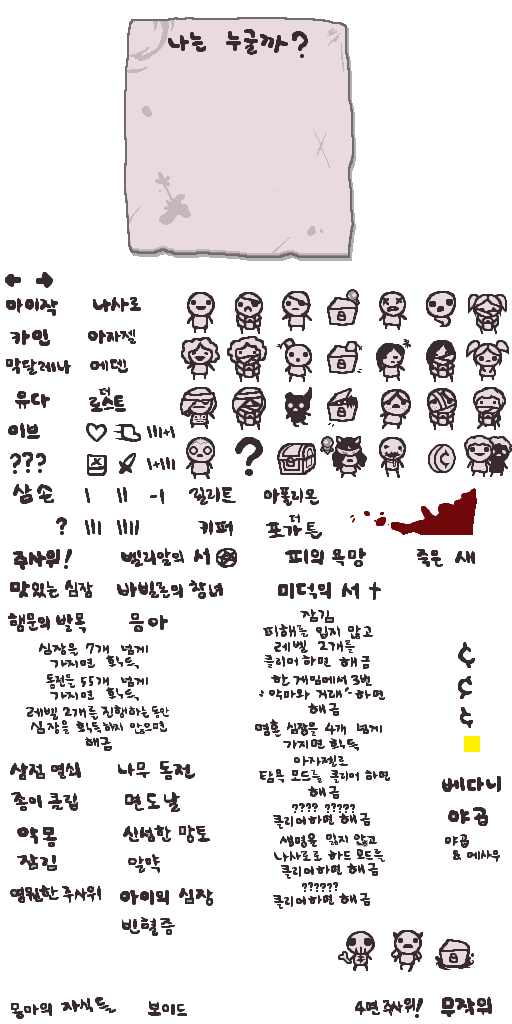 나는 누굴까?
아이작
나사로
카인
아자젤
막달레나
에덴
유다
더
로스트
이브
???
삼손
릴리트
아폴리온
?
키퍼
더
포가튼
주사위!
벨리알의 서
피의 욕망
죽은 새
맛있는 심장
바빌론의 창녀
미덕의 서
행운의 발목
뭄아
심장을 7개 넘게
가지면 획득,
동전을 55개 넘게
가지면 획득,
레벨 2개를 진행하는동안
심장을 획득하지 않으면
해금
잠김
피해를 입지 않고
레벨 2개를
클리어 하면 해금
한 게임에서 3번
"악마와 거래" 하면
해금
영혼 심장을 4개 넘게
가지면 획득
아자젤로
탐욕 모드를 클리어 하면
해금
???? ?????
클리어하면 해금
생명을 잃지 않고
나사로로 하드 모드를
클리어하면 해금
??????
클리어하면 해금
¢
¢
¢
삼전 열쇠
나무 동전
종이 클립
면도날
악몽
신성한 망토
잠김
알약
영원한 주사위
아이의 심장
빈혈증
베다니
야곱
야곱
& 에사우
몽마의 자식들
보이드
4면주사위!
무작위